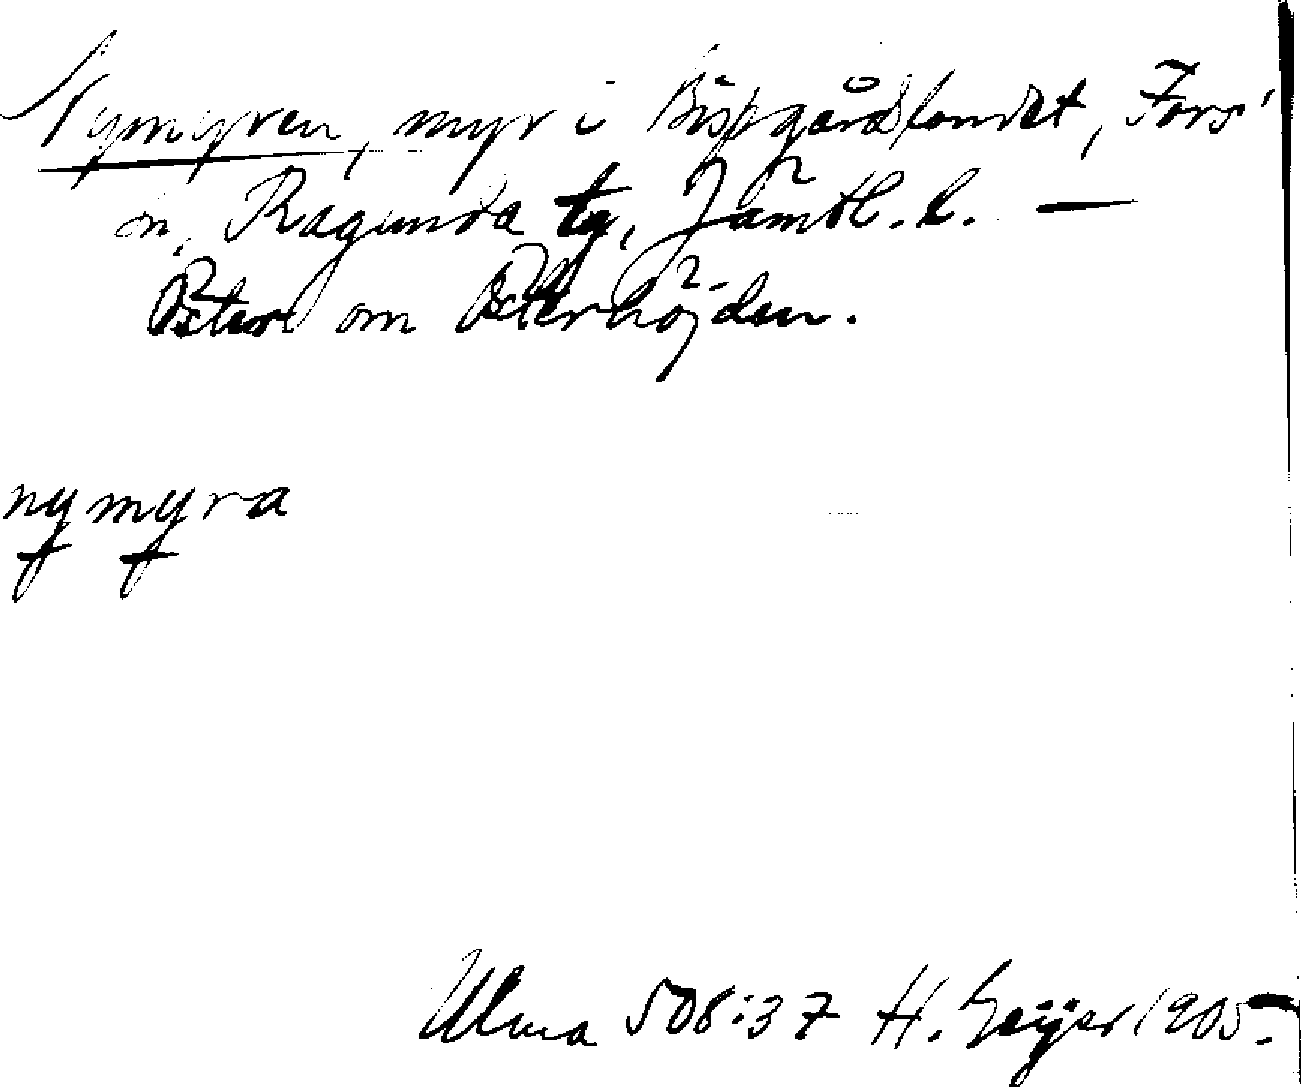 Nymyren, myr i Bispgårdlandet, Fors'
sn, Ragunda tg, Jämtl. l. —
Öster om Österhöjden.
nymyra
Ulma 508:37 H. Geijer 1905.